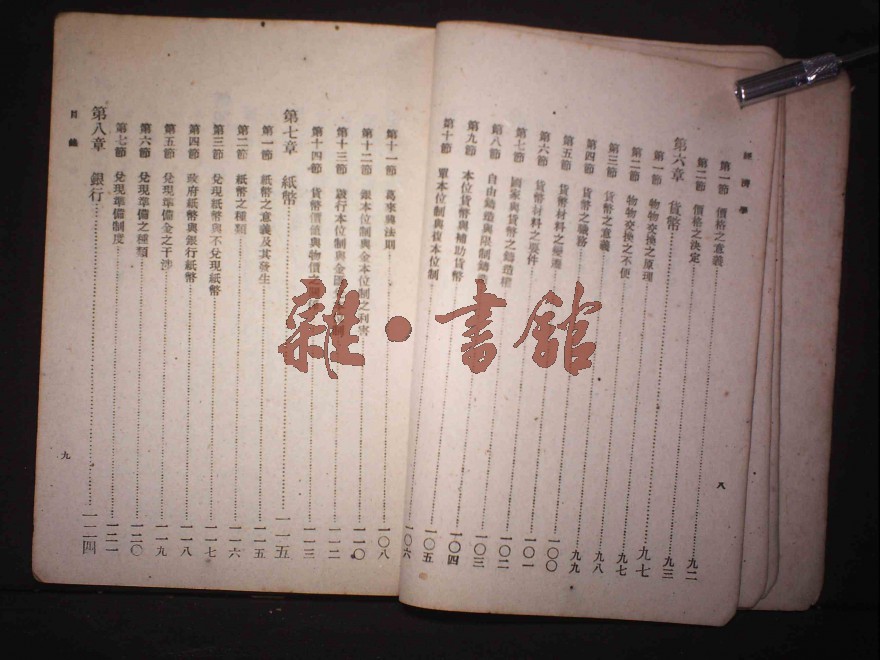 經濟學
第一節　價格之意義……九二
第二節　價格之決定……九三
第六章　貨幣……九七
第一節　物物交換之原理……九七
第二節　物物交換之不便……九八
第三節　貨幣之意義……九九
第四節　貨幣之職務
第五節　貨幣材料之變遷……一〇〇
第六節　貨幣材料之要件……一〇一
第七節　國家與貨幣之鑄造權……一〇二
第八節　自由鑄造與限制鑄造……一〇三
第九節　本位貨幣與補助貨幣……一〇四
第十節　單本位制與複本位制……一〇五
一〇六
八
第十一節　萬來興法則……一〇八
第十二節　銀本位制與金本位制之利害……一一〇
第十三節　跛行本位制與金匯……一一二
第十四節　貨幣價值與物價之……一一三
第七章　紙幣……一一五
第一節　紙幣之意義及其發生……一一五
第二節　紙幣之種類……一一六
第三節　兌現紙幣與不兌現紙幣……一一七
第四節　政府紙幣與銀行紙幣……一一八
第五節　兌現準備金之干涉……一一九
第六節　兌現準備之種類……一二〇
第七節　兌現準備制度……一二一
第八章　銀行……一二四
目錄
九
雜·書館